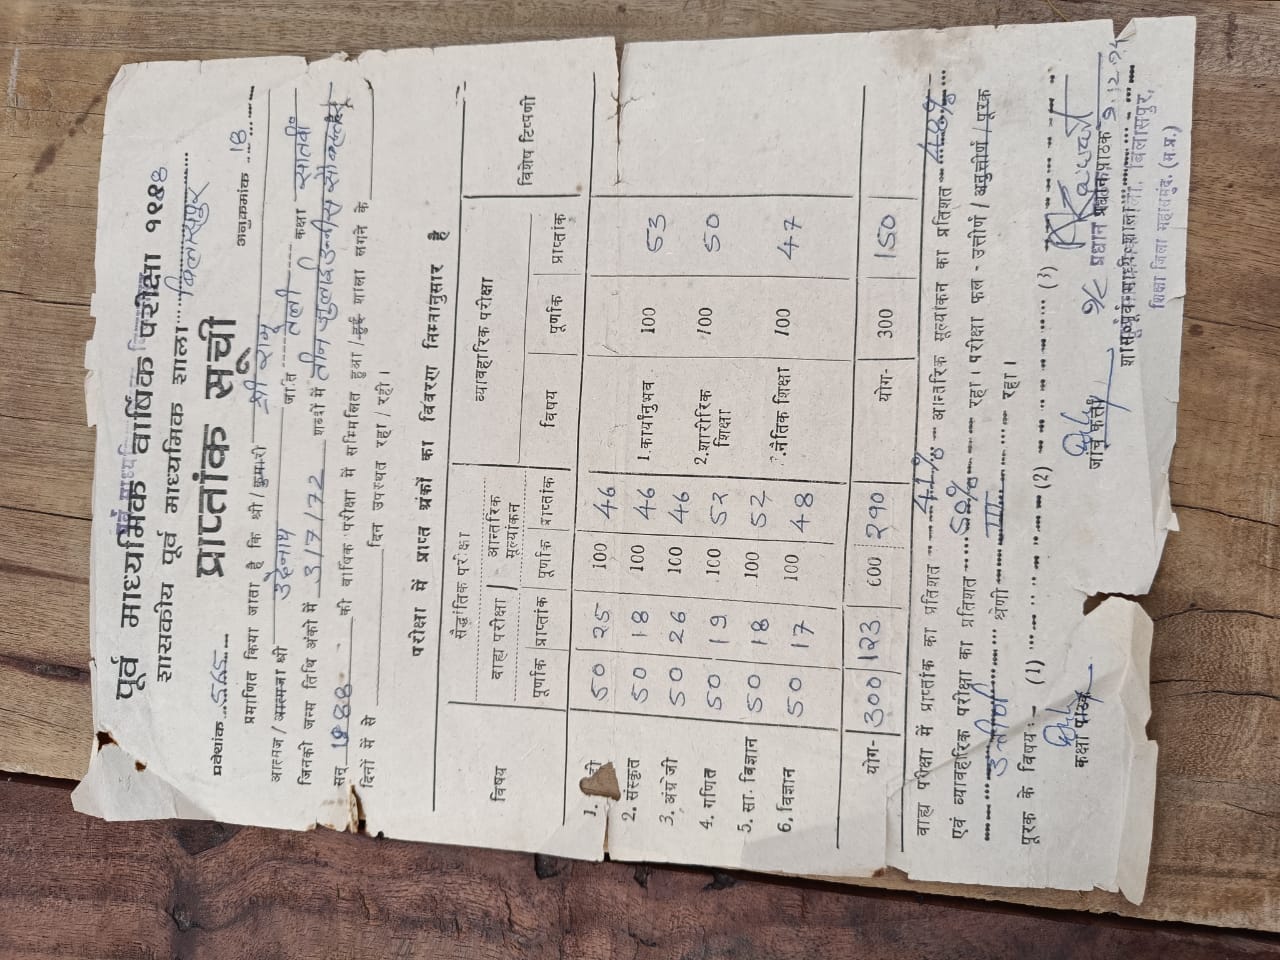 पूर्व माध्यमिक वार्षिक परीक्षा १९८८
शासकीय पूर्व माध्यमिक शाला बिलासपुर
प्राप्तांक सूची
प्रवेशांक 565 अनुक्रमांक 18
प्रमाणित किया जाता है कि श्री/कुमारी श्री राम
आत्मज/आत्मजा श्री उद्देनाथ जाति तेली कक्षा सातवीं
जिनकी जन्म तिथि अंकों में 3/7/72 शब्दों में तीन जुलाई उन्नीस सौ बहत्तर
सन् 1988 की वार्षिक परीक्षा में सम्मिलित हुआ/हुई शाला लगने के
दिनों में से दिन उपस्थित रहा/रही।
परीक्षा में प्राप्त अंकों का विवरण निम्नानुसार है
विषय सैद्धांतिक परीक्षा व्यावहारिक परीक्षा विशेष टिप्पणी
बाह्य परीक्षा आन्तरिक मूल्यांकन
पूर्णांक प्राप्तांक पूर्णांक प्राप्तांक विषय पूर्णांक प्राप्तांक
1. 50 25 100 46
2. संस्कृत 50 18 100 46 1.कार्यानुभव 100 53
3. अंग्रेजी 50 26 100 46
4. गणित 50 19 100 52 2.शारीरिक शिक्षा 100 50
5. सा. विज्ञान 50 18 100 52
6. विज्ञान 50 17 100 48 नैतिक शिक्षा 100 47
योग- 300 123 600 290 योग- 300 150
बाह्य परीक्षा में प्राप्तांक का प्रतिशत 41% आन्तरिक मूल्यांकन का प्रतिशत 48%
एवं व्यावहारिक परीक्षा का प्रतिशत 50% रहा। परीक्षा फल - उत्तीर्ण/अनुत्तीर्ण/पूरक
उत्तीर्ण श्रेणी रहा।
पूरक के विषय: - (1) (2) (3)
कक्षा पाठक जांच कर्त्ता प्रधान पाठक
9.12.94
बिलासपुर,
शिक्षा जिला महासमुंद. (म.प्र.)